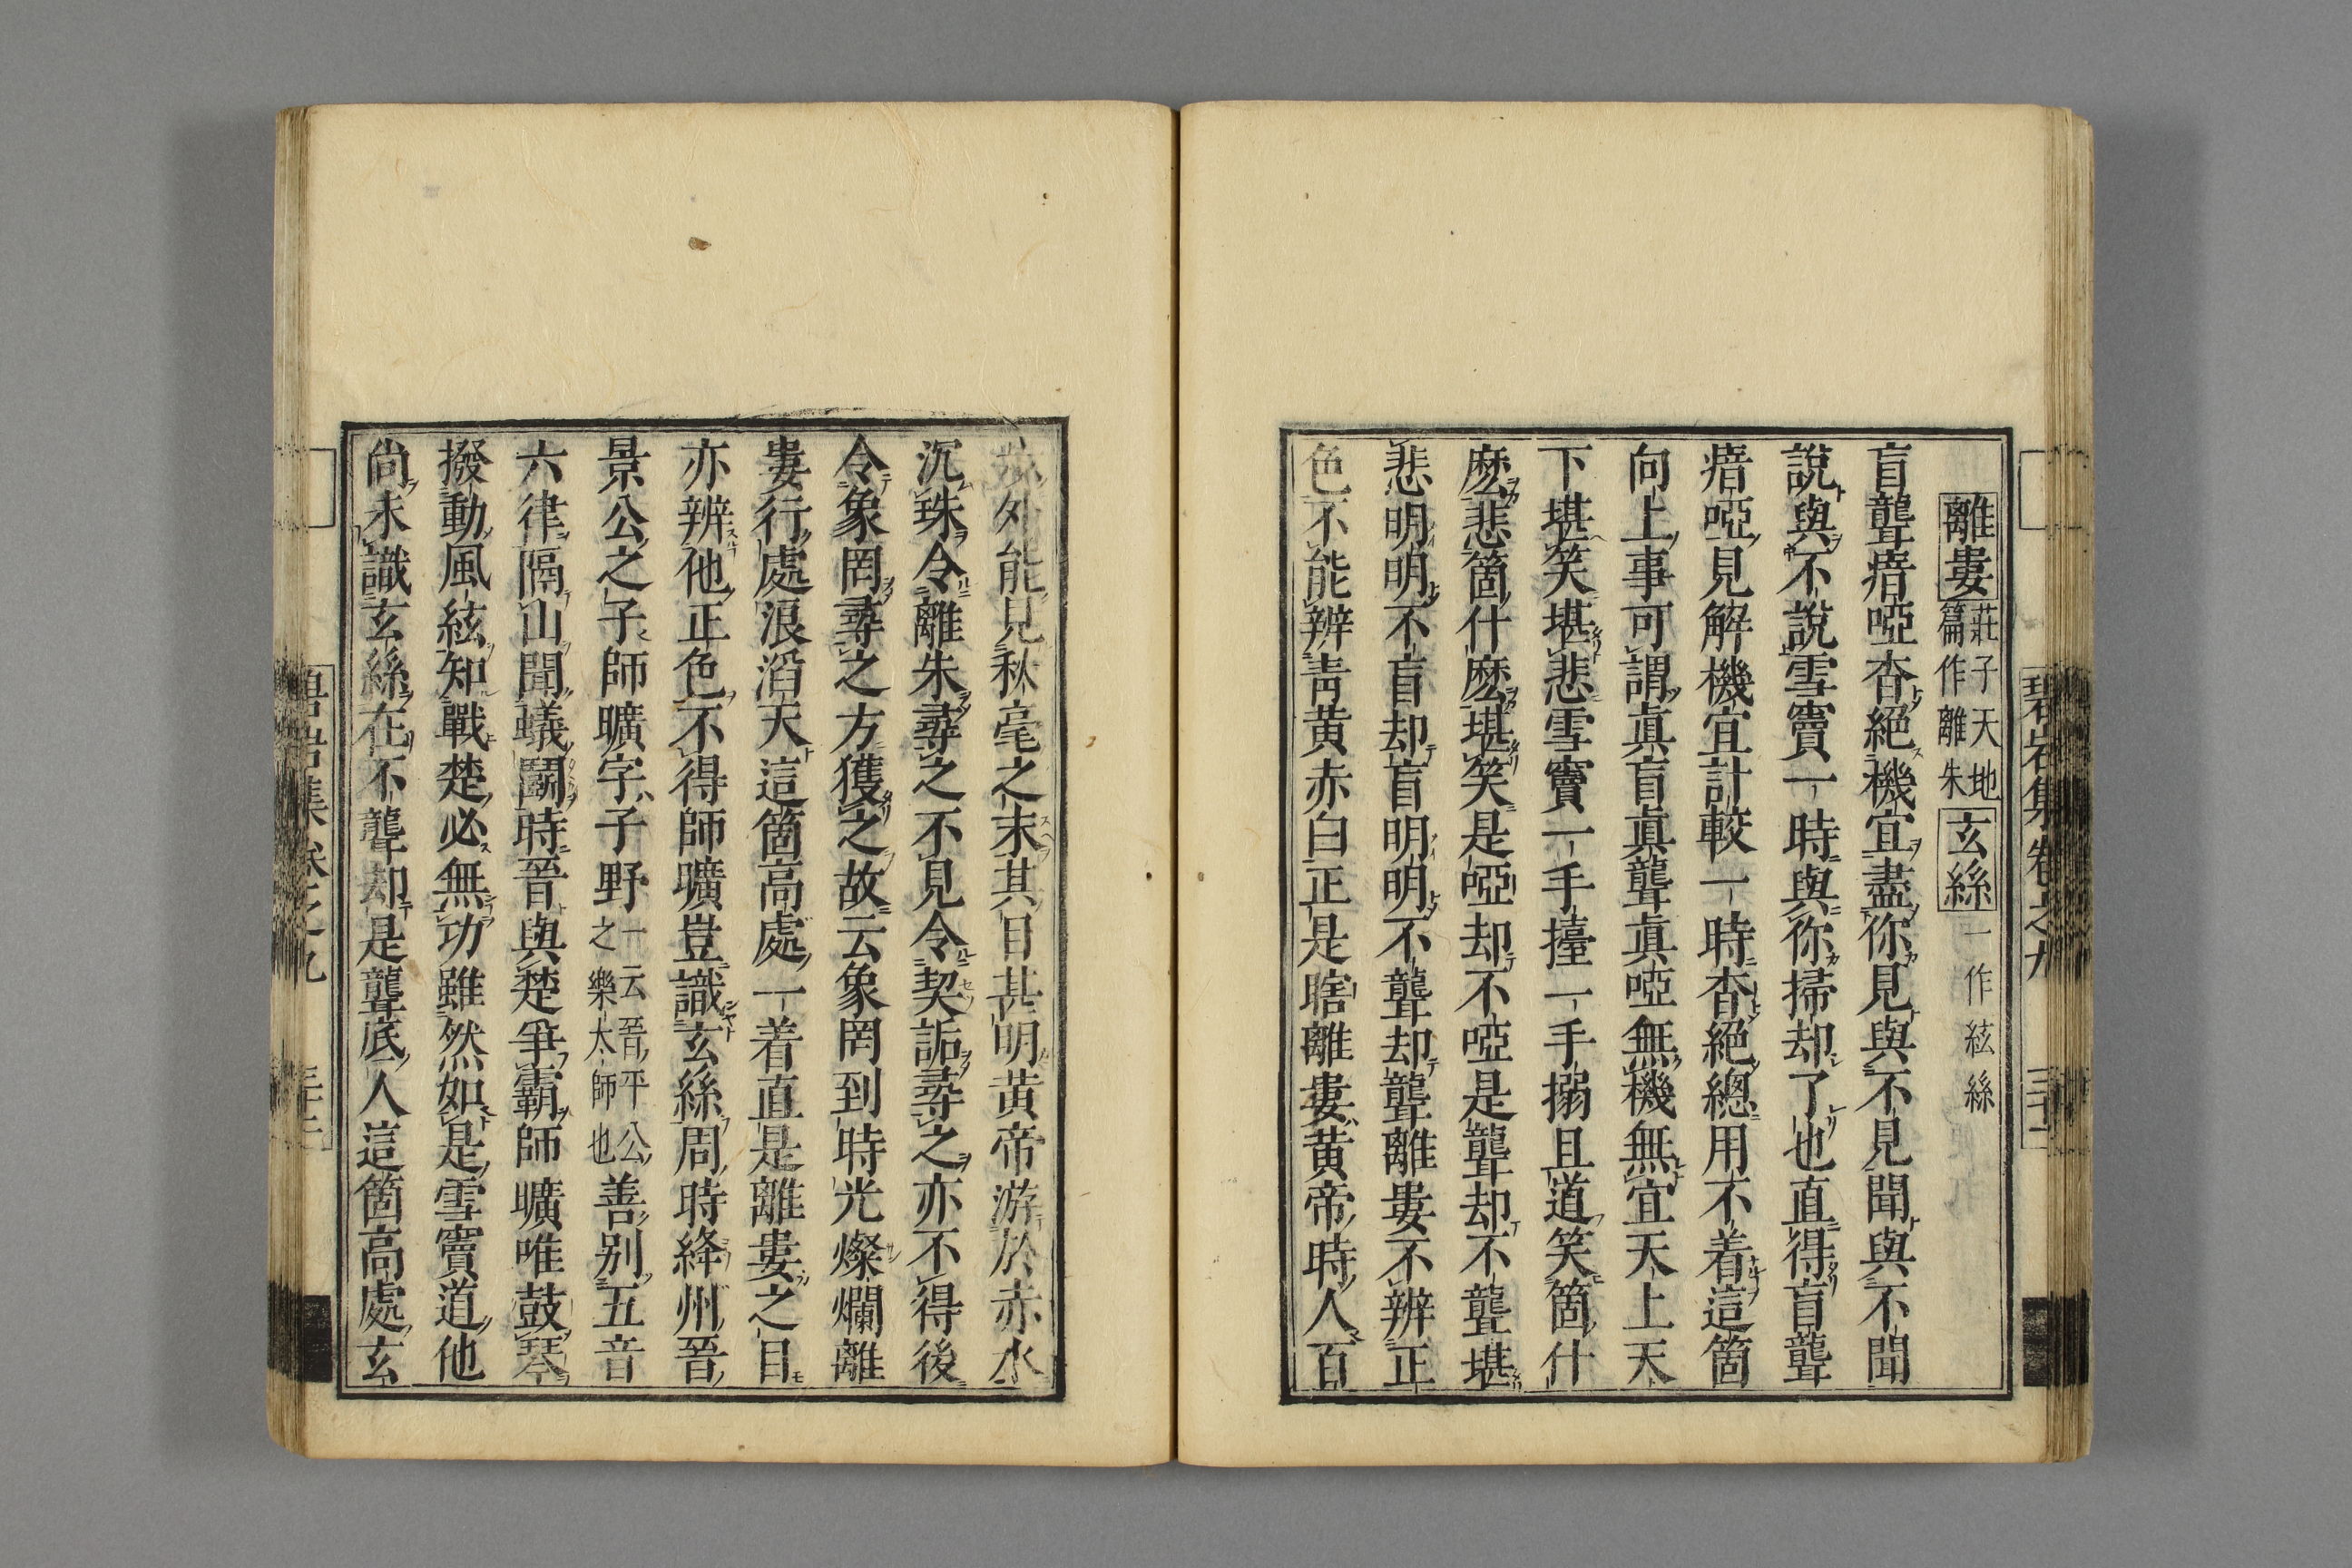 離婁 莊子天地篇作離朱 玄絲 一作絃絲
盲聾瘖啞杳絕機宜盡你見與不見聞與不聞
說與不說雪竇一時與你掃却了也直得盲聾
瘖啞見解機宜計較一時杳絕總用不着這箇
向上事可謂眞盲眞聾眞啞無機無宜天上天
下堪笑堪悲雪竇一手擡一手搦且道笑箇什
麽悲箇什麽堪笑是啞却不啞是聾却不聾堪
悲明明不盲却盲明明不聾却聾離婁不辨正
色不能辨靑黃赤白正是瞎離婁黃帝時人百
步外能見秋毫之末其目甚明黃帝游於赤水
沉珠令離朱尋之不見令契詬尋之亦不得後
令象罔尋之方獲之故云象罔到時光燦爛離
婁行處浪滔天這箇高處一着直是離婁之目
亦辨他正色不得師曠豈識玄絲周時絳州晉
景公之子師曠字子野 一云晉平公之樂太師也 善別五音
六律隔山聞蟻鬭時晉與楚爭霸師曠唯鼓琴
撥動風絃知戰楚必無功雖然如是雪竇道他
尙未識玄絲在不聾却是聾底人這箇高處玄
碧岩集卷之九